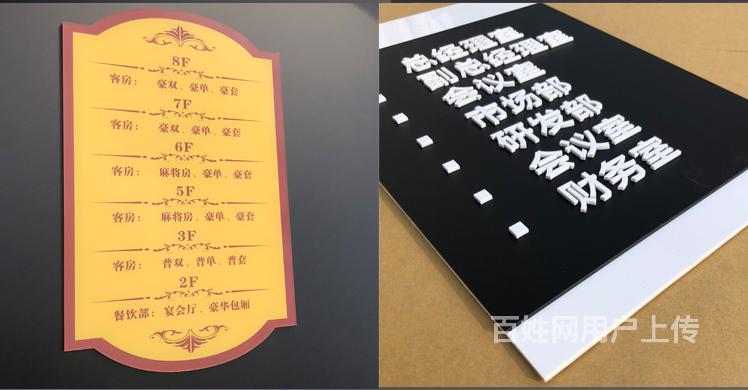 8F
客房： 豪双、豪单、豪套
7F
客房： 豪双、豪单、豪套
6F
客房： 麻将房、豪单、豪套
5F
客房： 麻将房、豪单、豪套
3F
客房： 普双、普单、普套
2F
餐饮部：宴会厅、豪华包厢
总经理室
副总经理室
会议室
市场部
研发部
会议室
财务室
百姓网用户上传